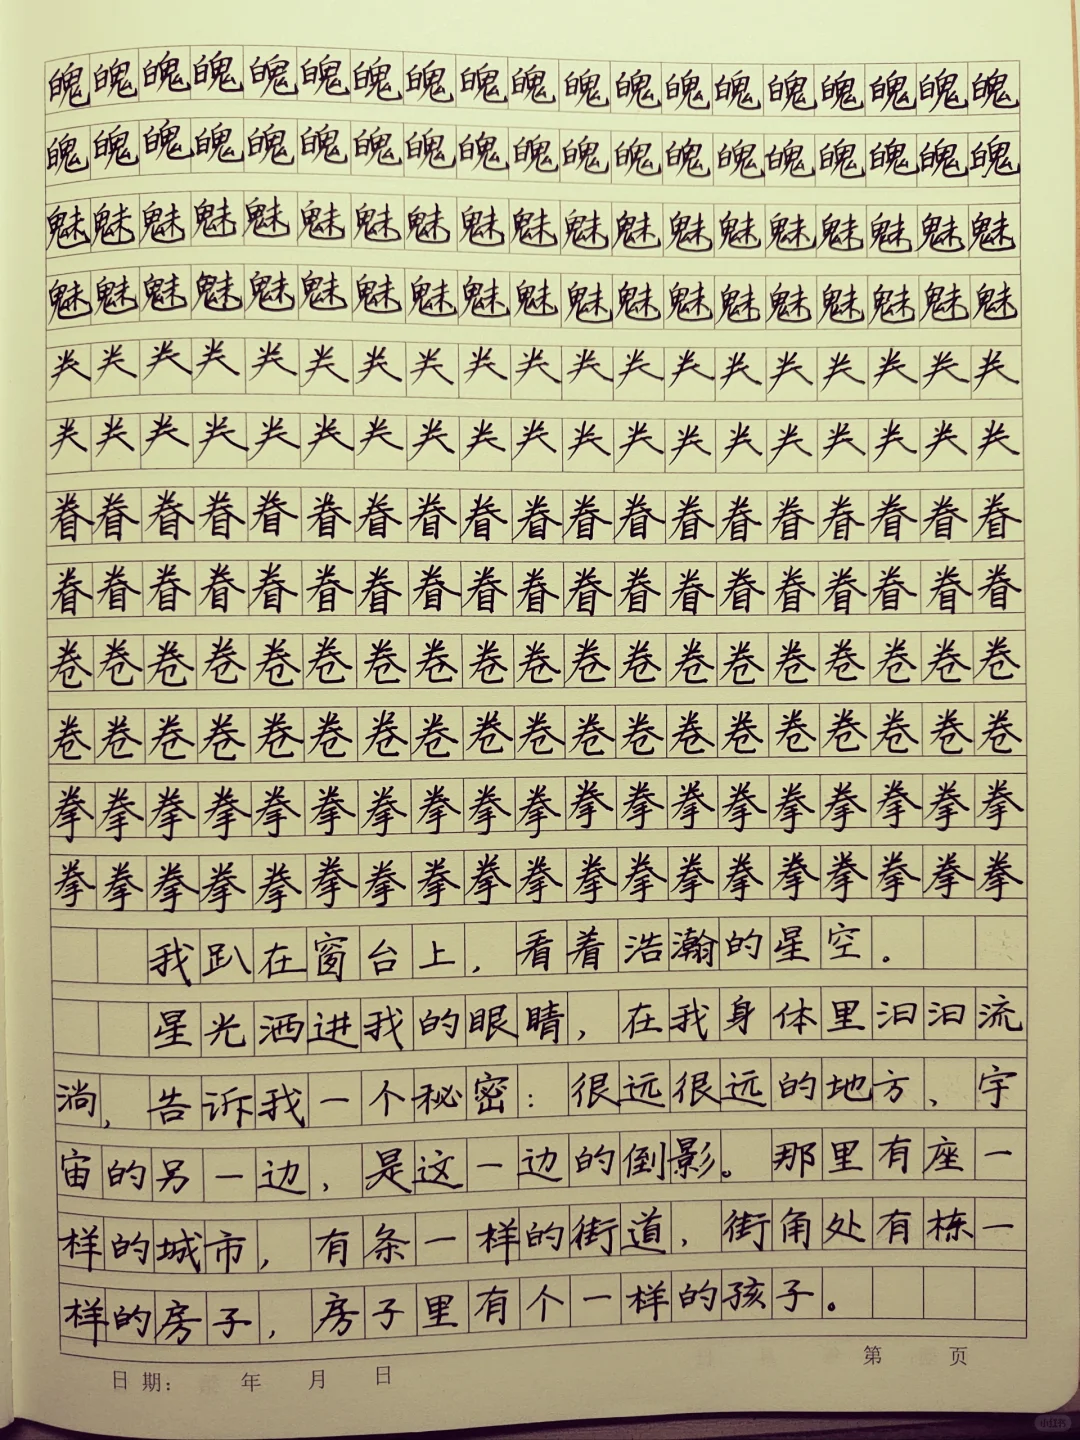 魄魄魄魄魄魄魄魄魄魄魄魄魄魄魄魄魄魄魄
魄魄魄魄魄魄魄魄魄魄魄魄魄魄魄魄魄魄魄
魅魅魅魅魅魅魅魅魅魅魅魅魅魅魅魅魅魅魅
魅魅魅魅魅魅魅魅魅魅魅魅魅魅魅魅魅魅魅
龹龹龹龹龹龹龹龹龹龹龹龹龹龹龹龹龹龹龹
龹龹龹龹龹龹龹龹龹龹龹龹龹龹龹龹龹龹龹
眷眷眷眷眷眷眷眷眷眷眷眷眷眷眷眷眷眷眷
眷眷眷眷眷眷眷眷眷眷眷眷眷眷眷眷眷眷眷
卷卷卷卷卷卷卷卷卷卷卷卷卷卷卷卷卷卷卷
卷卷卷卷卷卷卷卷卷卷卷卷卷卷卷卷卷卷卷
拳拳拳拳拳拳拳拳拳拳拳拳拳拳拳拳拳拳拳
拳拳拳拳拳拳拳拳拳拳拳拳拳拳拳拳拳拳拳
我趴在窗台上，看着浩瀚的星空。
星光洒进我的眼睛，在我身体里汩汩流
淌，告诉我一个秘密：很远很远的地方、宇
宙的另一边，是这一边的倒影。那里有座一
样的城市，有条一样的街道，街角处有栋一
样的房子，房子里有个一样的孩子。
第 页
日期： 年 月 日
小红书